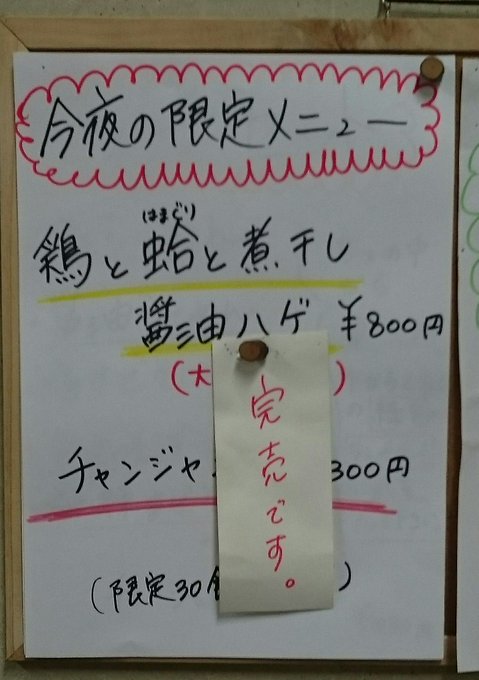 今夜の限定メニュー
はまぐり
鶏と蛤と煮干し
醤油ハゲ ¥800円
(大 )
チャンジャ 300円
(限定30 )
完売です。